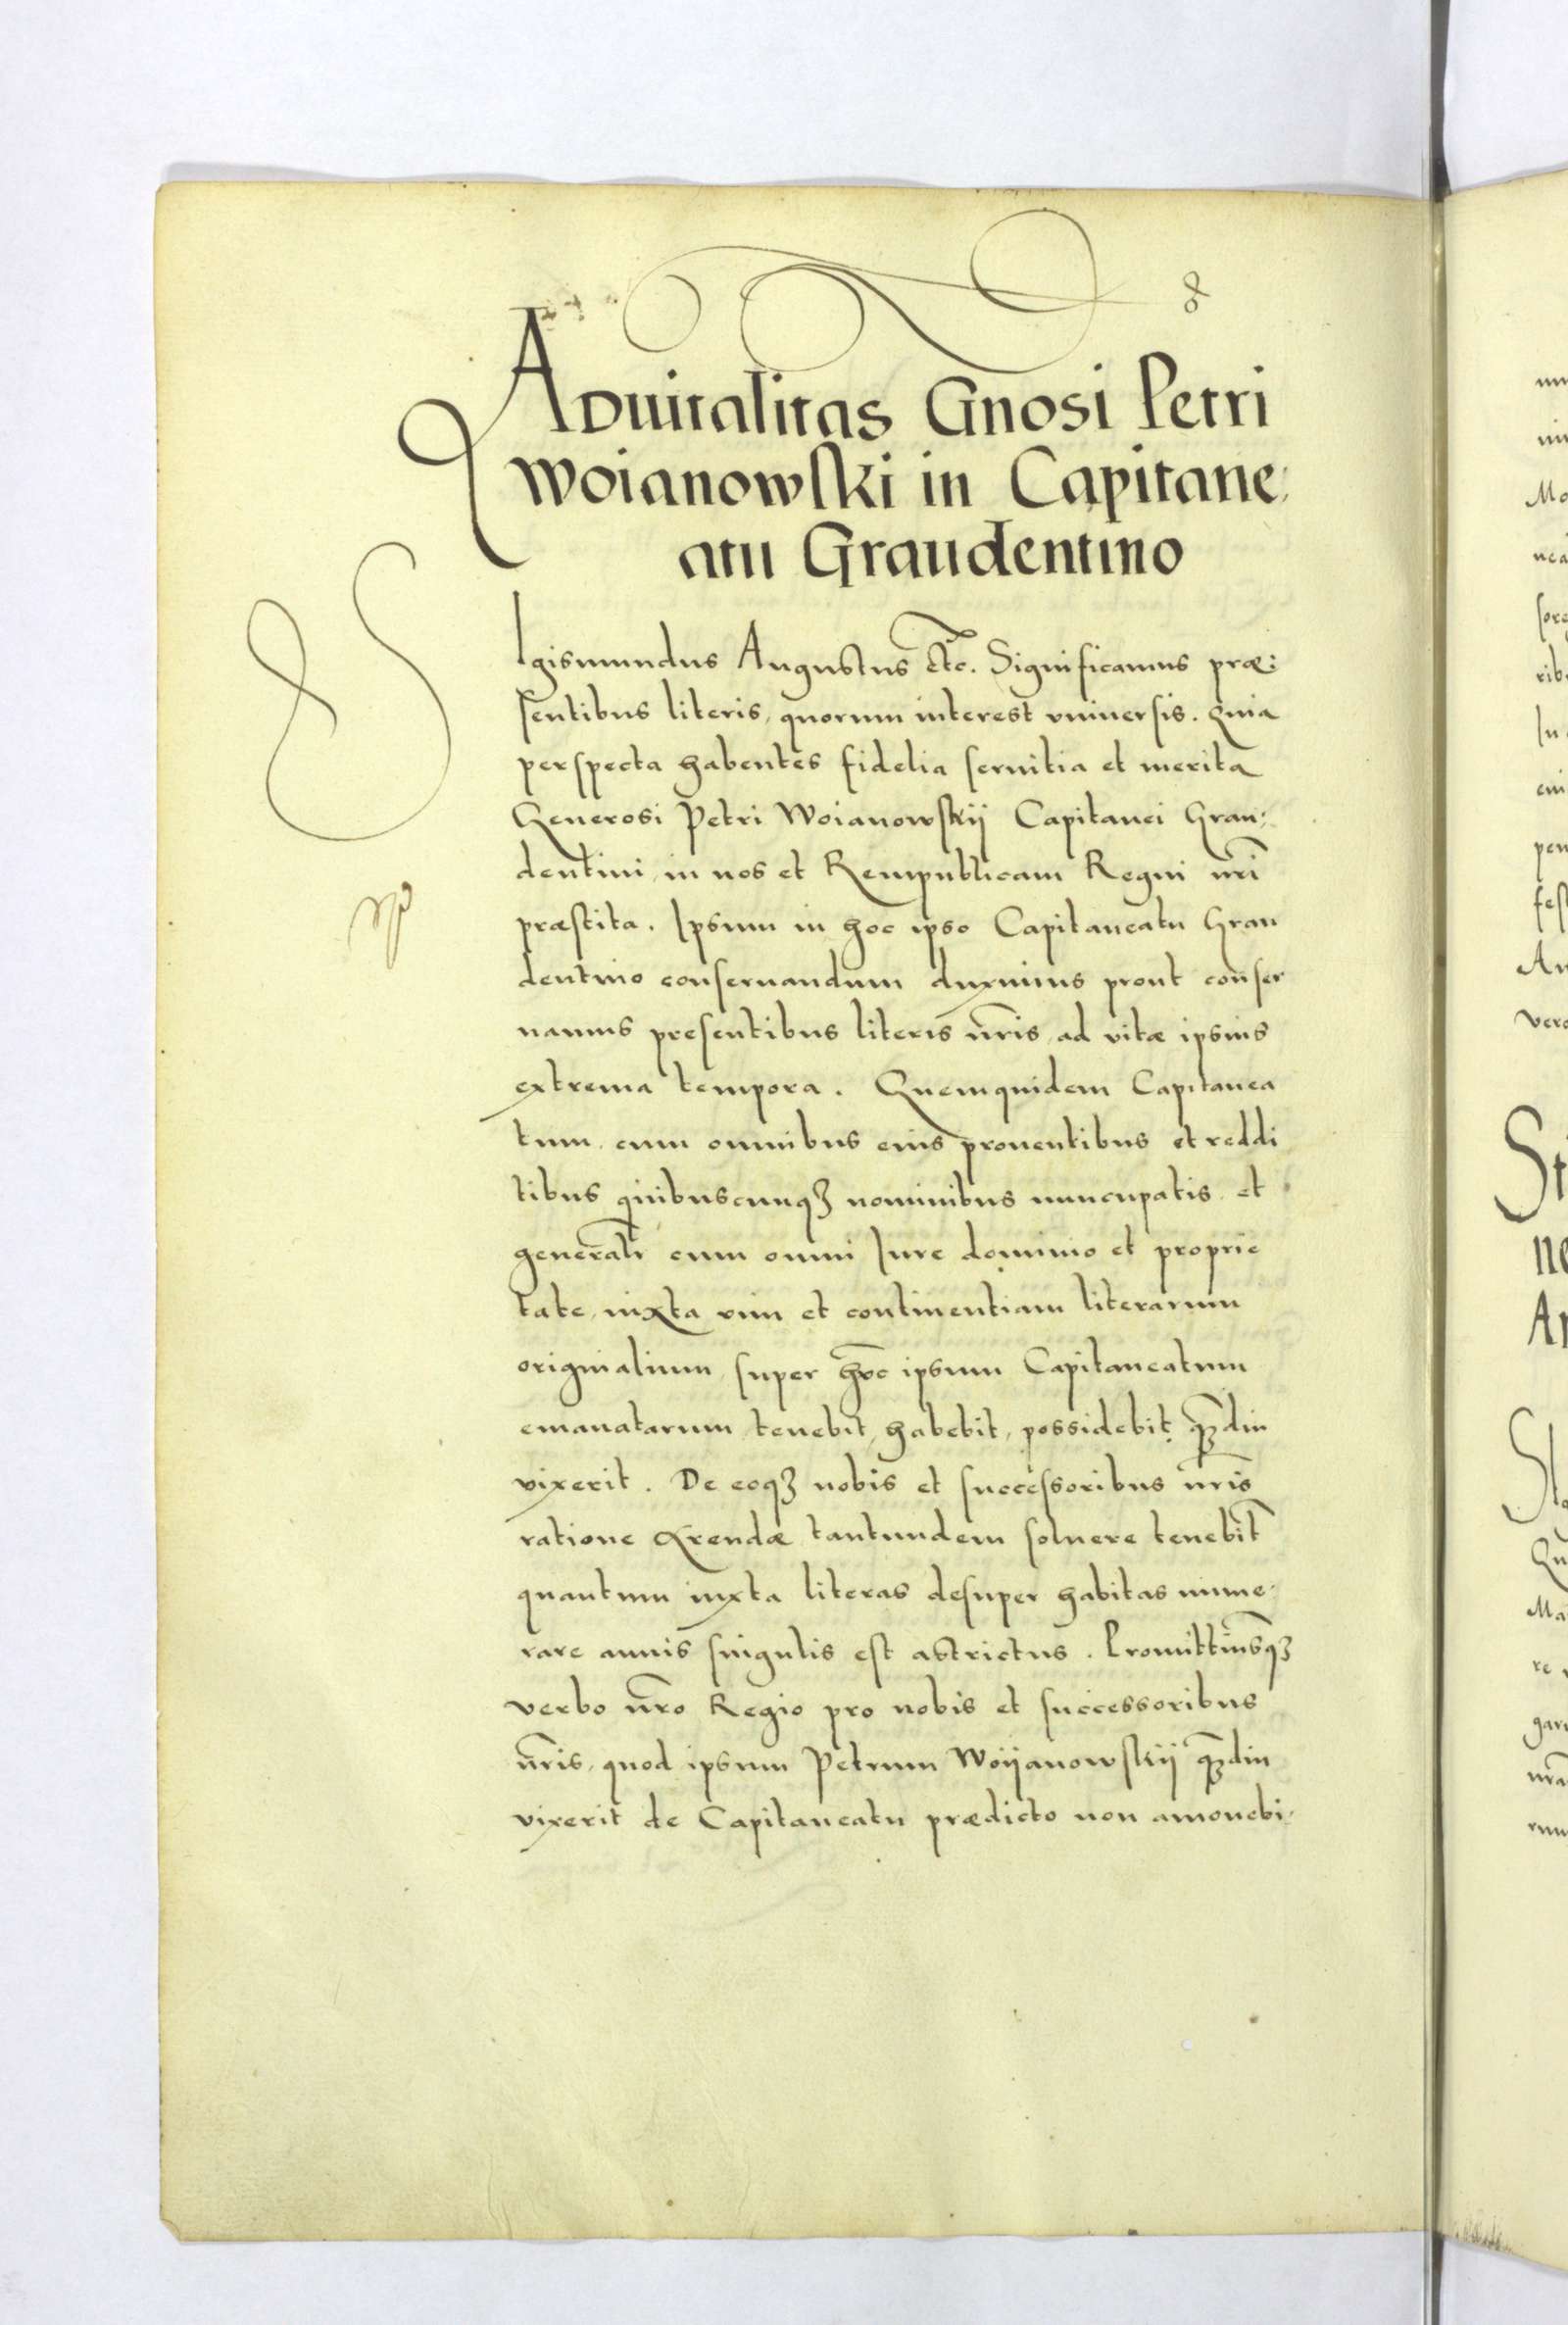 8
Aduitalitas Gnosi Petri
Woianowski in Capitane,
atu Graudentino
Sigismundus Augustus etc. Significamus præ:
sentibus literis, quorum interest vniuersis. Quia
perspecta habentes fidelia seruitia et merita
Generosi Petri Woianowskÿ Capitanei Grau:
dentini, in nos et Rempublicam Regni nr̃i
præstita. Ipsum in hoc ipso Capitaneatu Grau
dentino conseruandum duximus prout conser
uamus presentibus literis nr̃is, ad vitæ ipsius
extrema tempora. Quemquidem Capitanea
tum, cum omnibus eius prouentibus et reddi
tibus quibuscunqꝫ nominibus nuncupatis, et
generalr̃ cum omni Iure dominio et proprie
tate, iuxta vim et continentiam literarum
originalium, super hoc ipsum Capitaneatum
emanatarum, tenebit, habebit, possidebit, qꝫ̃diu
vixerit. De eoqꝫ nobis et successoribus nr̃is
ratione Arendæ tantundem soluere tenebit̃
quantum iuxta literas desuper habitas nume:
rare annis singulis est astrictus. Promittimusqꝫ
verbo nr̃o Regio pro nobis et successoribus
nr̃is, quod ipsum Petrum Woÿanowskÿ qꝫ̃diu
vixerit de Capitaneatu prædicto non amouebi,